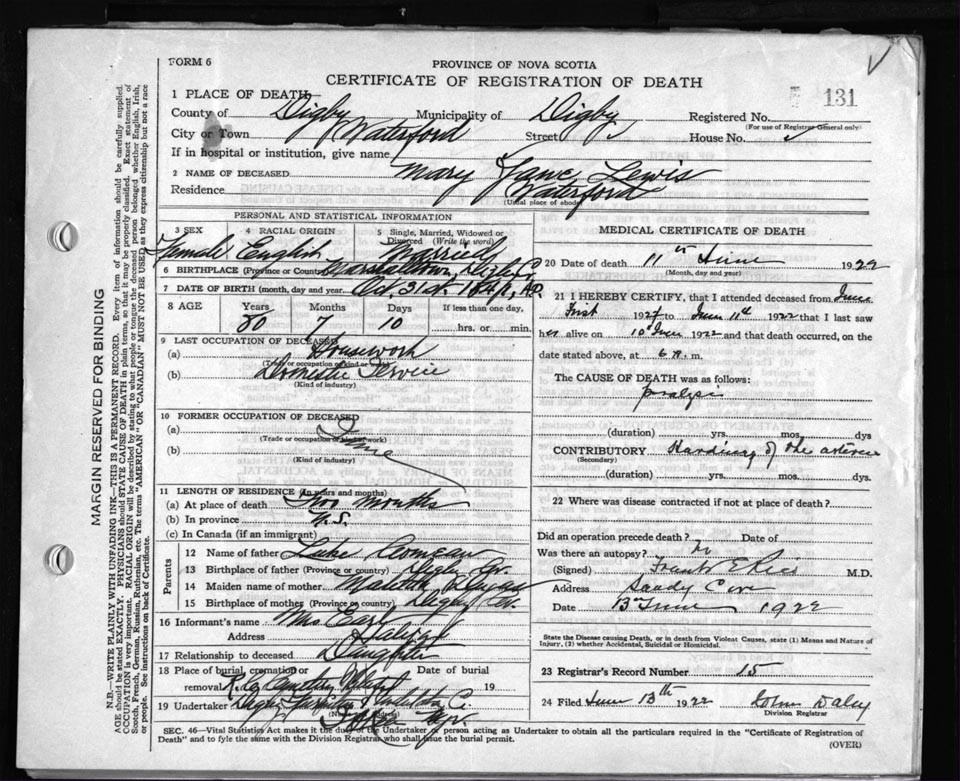 FORM 6
PROVINCE OF NOVA SCOTIA
CERTIFICATE OF REGISTRATION OF DEATH
131
1 PLACE OF DEATH
County of Digby Municipality of Digby Registered No.
(For use of Registrar General only)
City or Town Waterford Street House No.
If in hospital or institution, give name
2 NAME OF DECEASED Mary Jane Lewis
Residence Waterford
(Usual place of abode)
PERSONAL AND STATISTICAL INFORMATION
3 SEX 4 RACIAL ORIGIN 5 Single, Married, Widowed or Divorced (Write the word)
Female English Married
6 BIRTHPLACE (Province or Country)
7 DATE OF BIRTH (month, day and year) Oct, 31st
8 AGE Years Months Days If less than one day,
80 7 10 hrs. or min.
9 LAST OCCUPATION OF DECEASED
(a) Housework
(Trade or occupation or kind of work)
(b) Domestic Service
(Kind of industry)
10 FORMER OCCUPATION OF DECEASED
(a) Same
(Trade or occupation or kind of work)
(b)
(Kind of industry)
11 LENGTH OF RESIDENCE (In years and months)
(a) At place of death Two Months
(b) In province N.S.
(c) In Canada (if an immigrant)
Parents
12 Name of father Luke Comeau
13 Birthplace of father (Province or country) Digby Co.
14 Maiden name of mother
15 Birthplace of mother (Province or country) Digby Co.
16 Informant's name Mrs Earl
Address Halifax
17 Relationship to deceased Daughter
18 Place of burial, cremation or removal Cemetery Date of burial 19
19 Undertaker Digby
MEDICAL CERTIFICATE OF DEATH
20 Date of death 11th June 1922
(Month, day and year)
21 I HEREBY CERTIFY, that I attended deceased from June
First 192 to June 11th 1922 that I last saw
her alive on 10th June 1922 and that death occurred, on the
date stated above, at 6 A. m.
The CAUSE OF DEATH was as follows:
paralysis
(duration) yrs. mos. dys
CONTRIBUTORY Hardening of the arteries
(Secondary)
(duration) yrs. mos. dys.
22 Where was disease contracted if not at place of death?
Did an operation precede death? Date of
Was there an autopsy? No
(Signed) Frank E Rice M.D.
Address Sandy Cove
Date 13 June 1922
State the Disease causing Death, or in death from Violent Causes, state (1) Means and Nature of
Injury, (2) whether Accidental, Suicidal or Homicidal.
23 Registrar's Record Number 15
24 Filed June 13th 1922 John Daley
Division Registrar
SEC. 46—Vital Statistics Act makes it the duty of the Undertaker or person acting as Undertaker to obtain all the particulars required in the "Certificate of Registration of
Death" and to fyle the same with the Division Registrar who shall issue the burial permit.
(OVER)
MARGIN RESERVED FOR BINDING
N.B.—WRITE PLAINLY WITH UNFADING INK—THIS IS A PERMANENT RECORD. Every item of information should be carefully supplied.
AGE should be stated EXACTLY. PHYSICIANS should STATE CAUSE OF DEATH in plain terms, so that it may be properly classified. Exact statement of
OCCUPATION is very important. RACIAL ORIGIN will be described by stating to what people or tongue the deceased person belonged whether English, Irish,
Scotch, French, German, Russian, Ruthenian, etc. The terms "AMERICAN" OR "CANADIAN" MUST NOT BE USED as they express citizenship but not a race
or people. See instructions on back of Certificate.